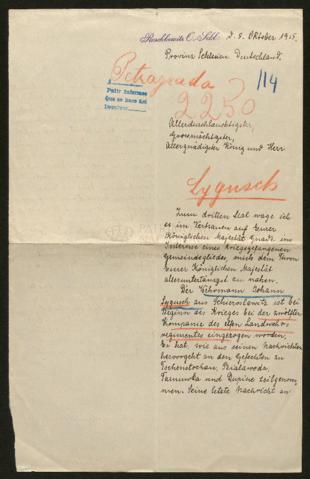 Raschlowitz O. Schl. d. 8. Oktober 1915.
Provinz Schlesien Deutschland.
Petrogrado
114
Pedir informes
Que se haca del
2250
Allerdurchlauchtigster,
Grossmächtigster,
Allergnädigster König und Herr
Cygusch
Zum dritten Mal wage ich
es im Vertrauen auf Eurer
Königlichen Majestät Gnade im
Interesse eines kriegsgefangenen
Gemeindegliedes, mich dem Thron
Eurer Königlichen Majestät
alleruntertänigst zu nahen.
Der Wehrmann Johann
Cygusch aus Schieroslawitz ist bei
Beginn des Krieges bei der zwölften
Kompanie des elften Landwehr-
regimentes eingezogen worden.
Er hat, wie aus seinen Nachrichten
hervorgeht an den Gefechten zu
Tschenstochau, Bialawoda,
Tarnowka und Rupine teilgenom-
men. Seine letzte Nachricht an